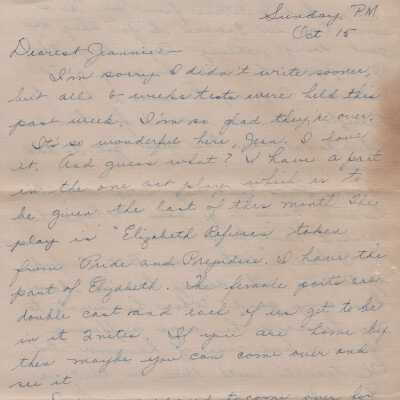 Sunday, PM
Oct 15
Dearest Jeannie —
I'm sorry I didn't write sooner,
but all 6 weeks tests were held this
past week. I'm so glad they're over.
It's so wonderful here, Jean. I love
it. And guess what? I have a part
in the one act play which is to
be given the last of this month. The
play is "Elizabeth Refuses" taken
from Pride and Prejudice. I have the
part of Elizabeth. The female parts are
double cast and each of us get to be
in it 2 nites. If you are home by
then maybe you can come over and
see it.
to come over